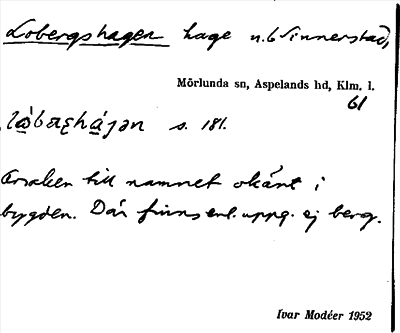 Lobergshagen hage n.b Sinnerstad,
Mörlunda sn, Aspelands hd, Klm. l.
61
s. 181.
Orsaken till namnet okänt i
bygden. Där finns enl. uppg. ej berg.
Ivar Modéer 1952